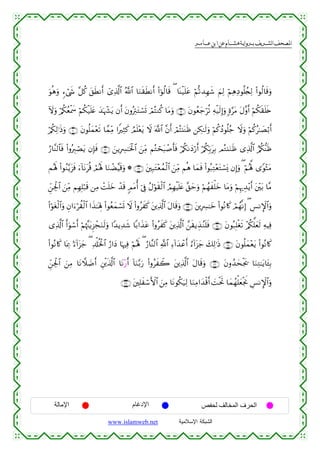 المصحف الشريف برواية هشام عن ابن عامر
وَقَالُوا۟ لِجُلُودِهِمْ لِمَ شَهِدتُّمْ عَلَيْنَا ۖ قَالُوٓا۟ أَنطَقَنَا ٱللَّهُ ٱلَّذِىٓ أَنطَقَ كُلَّ شَىْءٍ وَهُوَ
خَلَقَكُمْ أَوَّلَ مَرَّةٍ وَإِلَيْهِ تُرْجَعُونَ ۝ وَمَا كُنتُمْ تَسْتَتِرُونَ أَن يَشْهَدَ عَلَيْكُمْ سَمْعُكُمْ وَلَآ
أَبْصَٰرُكُمْ وَلَا جُلُودُكُمْ وَلَٰكِن ظَنَنتُمْ أَنَّ ٱللَّهَ لَا يَعْلَمُ كَثِيرًا مِّمَّا تَعْمَلُونَ ۝ وَذَٰلِكُمْ
ظَنُّكُمُ ٱلَّذِى ظَنَنتُم بِرَبِّكُمْ أَرْدَىٰكُمْ فَأَصْبَحْتُم مِّنَ ٱلْخَٰسِرِينَ ۝ فَإِن يَصْبِرُوا۟ فَٱلنَّارُ
مَثْوًى لَّهُمْ ۖ وَإِن يَسْتَعْتِبُوا۟ فَمَا هُم مِّنَ ٱلْمُعْتَبِينَ ۝ ۞ وَقَيَّضْنَا لَهُمْ قُرَنَآءَ فَزَيَّنُوا۟ لَهُم
مَّا بَيْنَ أَيْدِيهِمْ وَمَا خَلْفَهُمْ وَحَقَّ عَلَيْهِمُ ٱلْقَوْلُ فِىٓ أُمَمٍ قَدْ خَلَتْ مِن قَبْلِهِم مِّنَ ٱلْجِنِّ
وَٱلْإِنسِ ۖ إِنَّهُمْ كَانُوا۟ خَٰسِرِينَ ۝ وَقَالَ ٱلَّذِينَ كَفَرُوا۟ لَا تَسْمَعُوا۟ لِهَٰذَا ٱلْقُرْءَانِ وَٱلْغَوْا۟
فِيهِ لَعَلَّكُمْ تَغْلِبُونَ ۝ فَلَنُذِيقَنَّ ٱلَّذِينَ كَفَرُوا۟ عَذَابًا شَدِيدًا وَلَنَجْزِيَنَّهُمْ أَسْوَأَ ٱلَّذِى
كَانُوا۟ يَعْمَلُونَ ۝ ذَٰلِكَ جَزَآءُ أَعْدَآءِ ٱللَّهِ ٱلنَّارُ ۖ لَهُمْ فِيهَا دَارُ ٱلْخُلْدِ ۖ جَزَآءًۢ بِمَا كَانُوا۟
بِـَٔايَٰتِنَا يَجْحَدُونَ ۝ وَقَالَ ٱلَّذِينَ كَفَرُوا۟ رَبَّنَآ أَرْنَا ٱلَّذَيْنِ أَضَلَّانَا مِنَ ٱلْجِنِّ
وَٱلْإِنسِ نَجْعَلْهُمَا تَحْتَ أَقْدَامِنَا لِيَكُونَا مِنَ ٱلْأَسْفَلِينَ ۝
الحرف المخالف لحفص الإدغام الإمالة
الشبكة الإسلامية www.islamweb.net